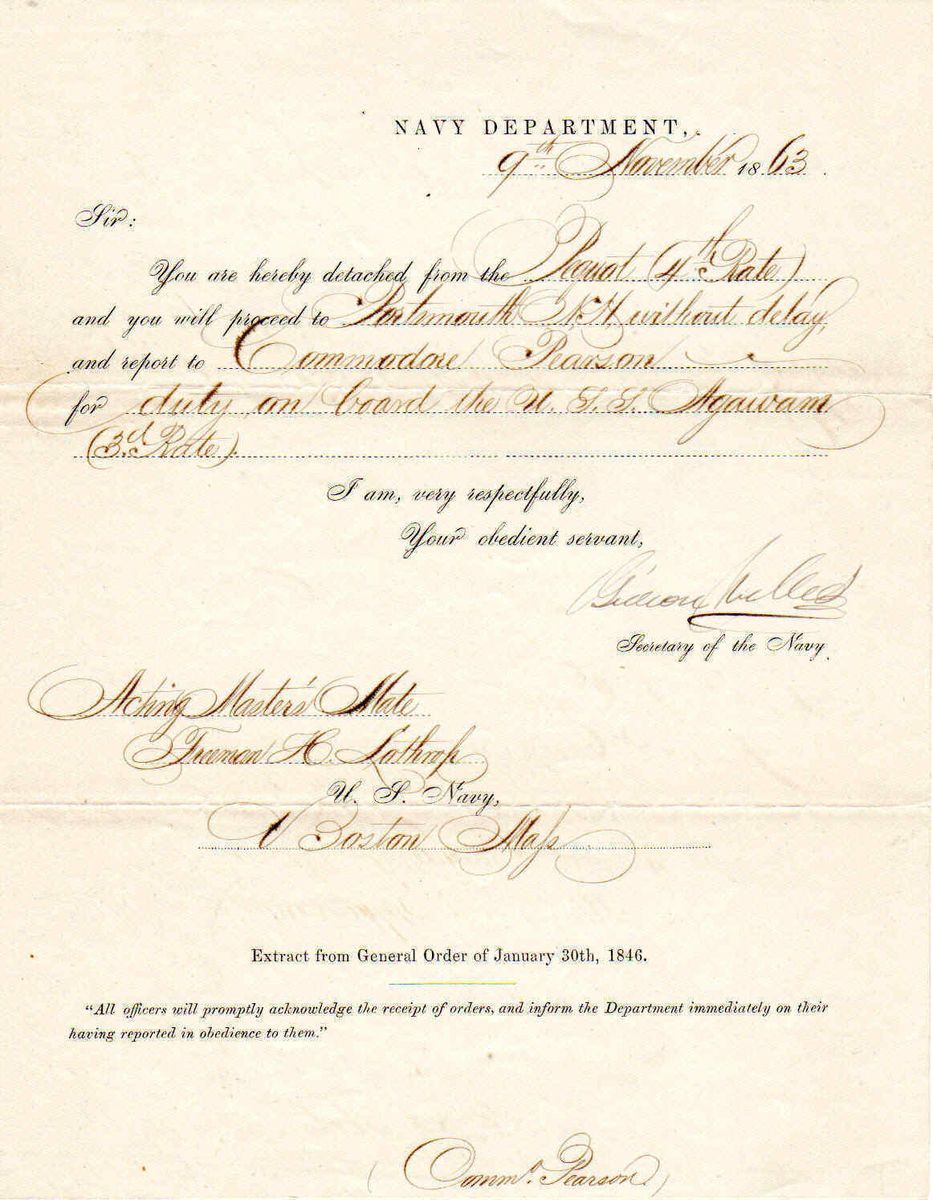 NAVY DEPARTMENT,
9th November 1863.
Sir:
You are hereby detached from the Pequot (4th Rate)
and you will proceed to Portsmouth N.H. without delay,
and report to Commodore Pearson
for duty on board the U. S. S. Agawam
(3d. Rate).
I am, very respectfully,
Your obedient servant,
Gideon Welles
Secretary of the Navy.
Acting Master's Mate
Freeman H. Lathrop
U. S. Navy,
Boston Mass
Extract from General Order of January 30th, 1846.
"All officers will promptly acknowledge the receipt of orders, and inform the Department immediately on their
having reported in obedience to them."
(Commo. Pearson.)